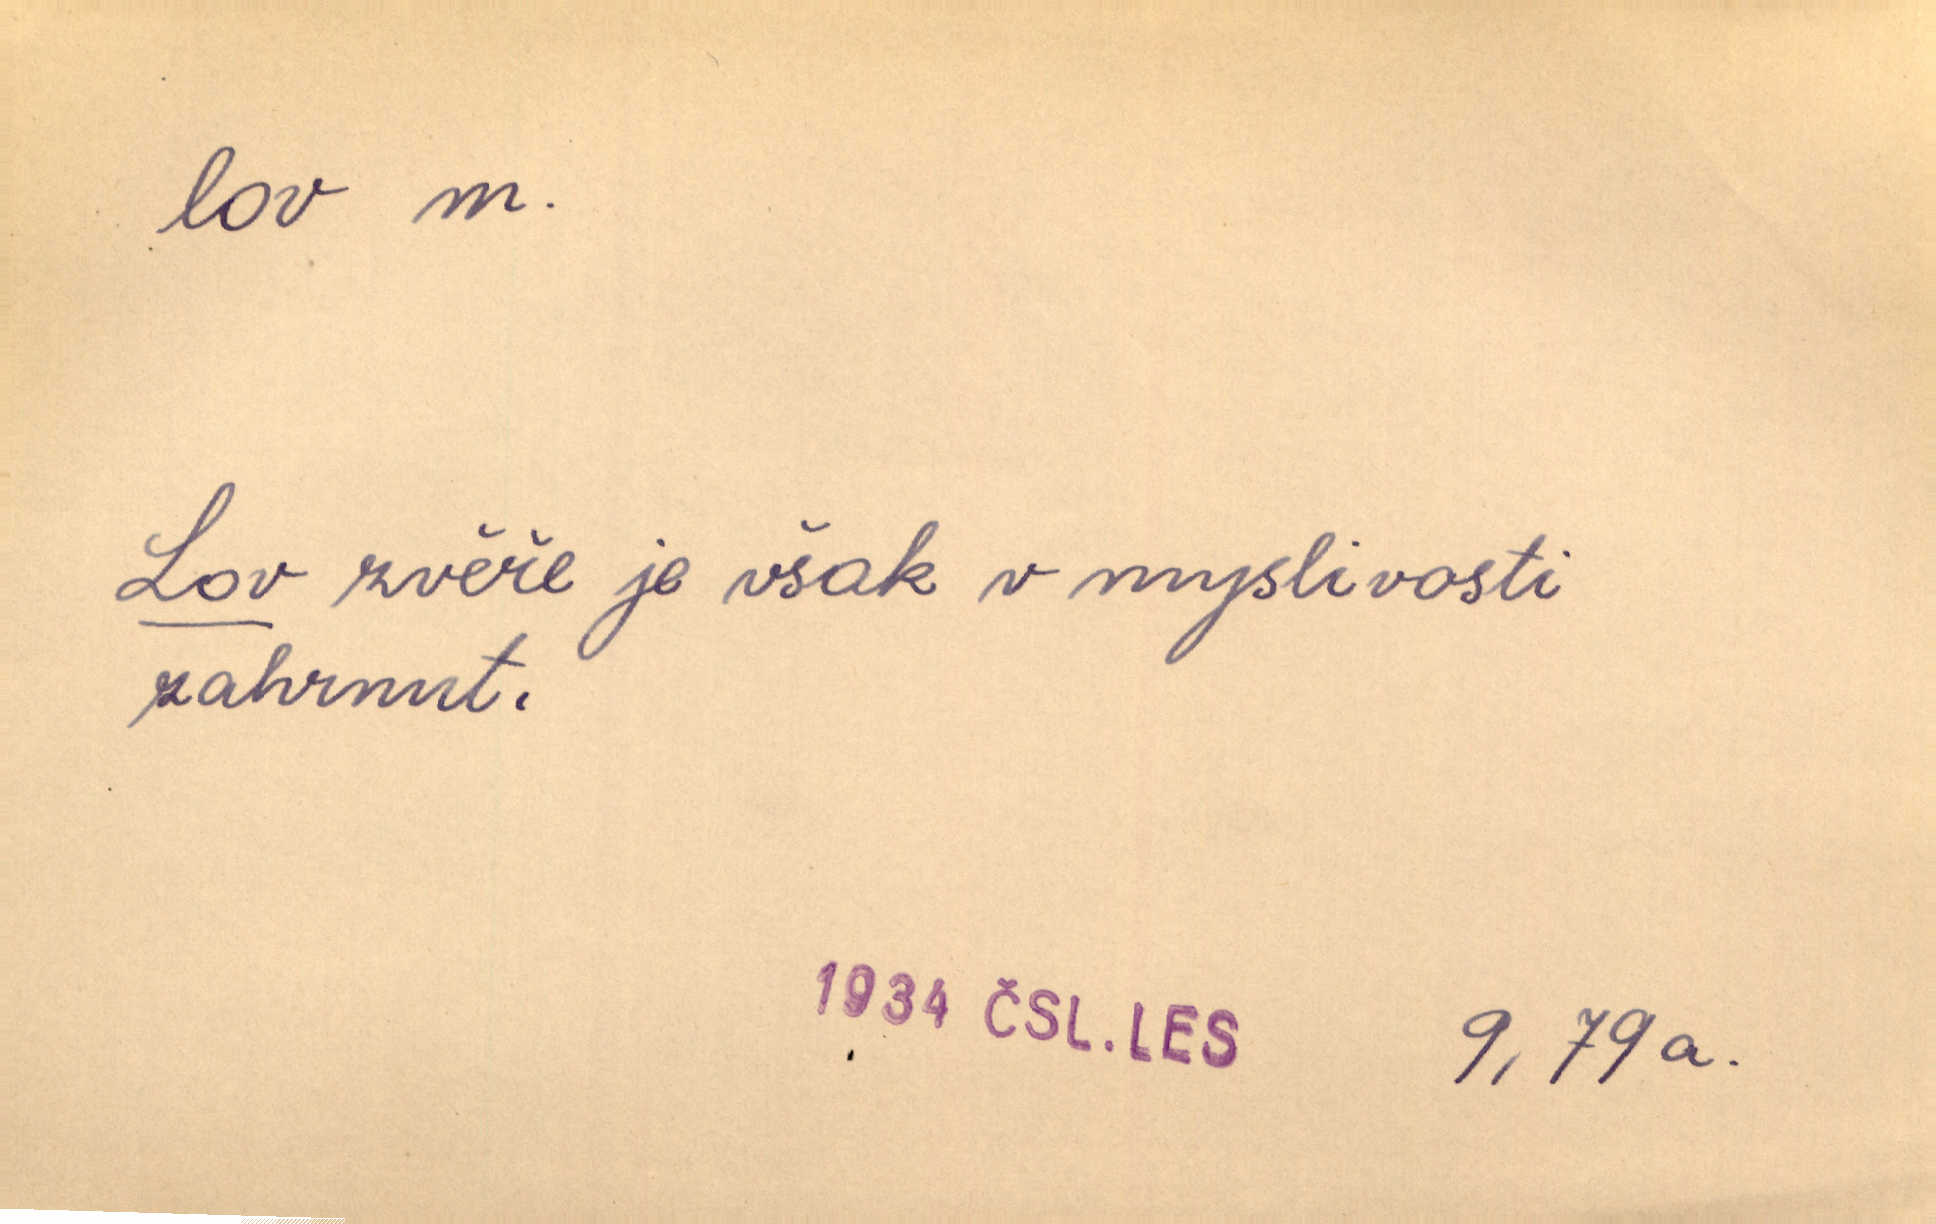 lov m.
Lov zvěře je však v myslivosti
zahrnut.
1934 ČSL.LES 9, 79a.